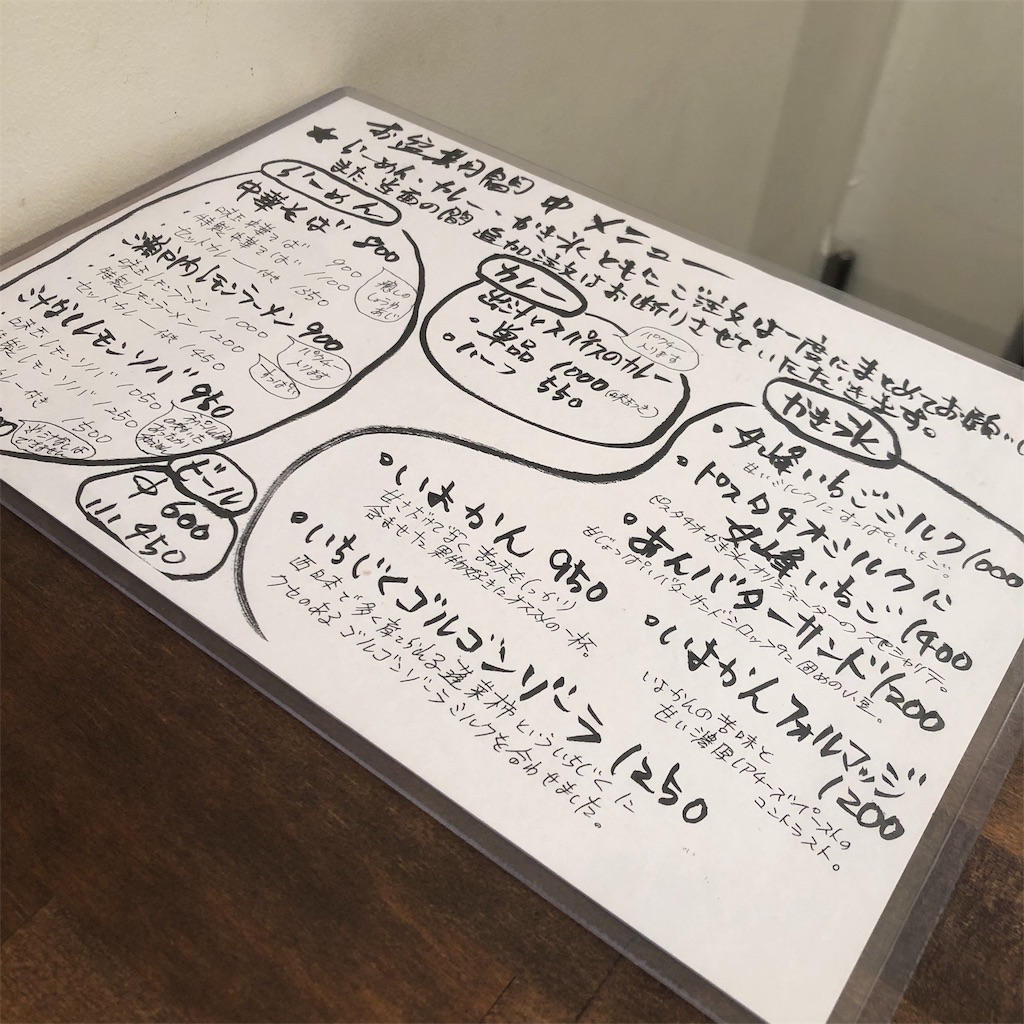 お盆期間中メニュー
★らーめん、カレー、かき氷ともにご注文は一度にまとめてお願いし
また当面の間追加注文はお断りさせていただきます。
らーめん
中華そば 800
味玉中華そば 900
特製中華そば 1100
セットカレー付 1350
癒しの
しょうゆ
あじ
・瀬戸内レモンラーメン 900
味玉レモンラーメン 1000
特製レモンラーメン 1200
セットカレー付 1450
パクチー
入ります
すっぱい
汁なしレモンソバ 950
味玉レモンソバ 1050
特製レモンソバ 1250
カレー付 1500
ビール
中 600
950
カレー
出汁とスパイスのカレー
パクチー
入ります
・単品 1000
・ハーフ 550
かき氷
・女峰いちごミルク 1000
甘いミルクにすっぱいいちご。
・ピスタチオミルクに
女峰いちご 1400
ピスタチオかき氷オリジネーターのスペシャリテ。
・あんバターサンド 1200
甘じょっぱいバターサンドシロップと固めの小豆。
・いよかんフォルマッジ
1200
いよかんの苦味と
甘い濃厚UPチーズペーストの
コントラスト。
・いよかん 950
甘さだけでなく苦味をしっかり
含ませた果物好きにオススメの一杯。
・いちじくゴルゴンゾーラ 1250
西日本で多く育てられる蓬莱柿といういちじくに
クセのあるゴルゴンゾーラミルクを合わせました。